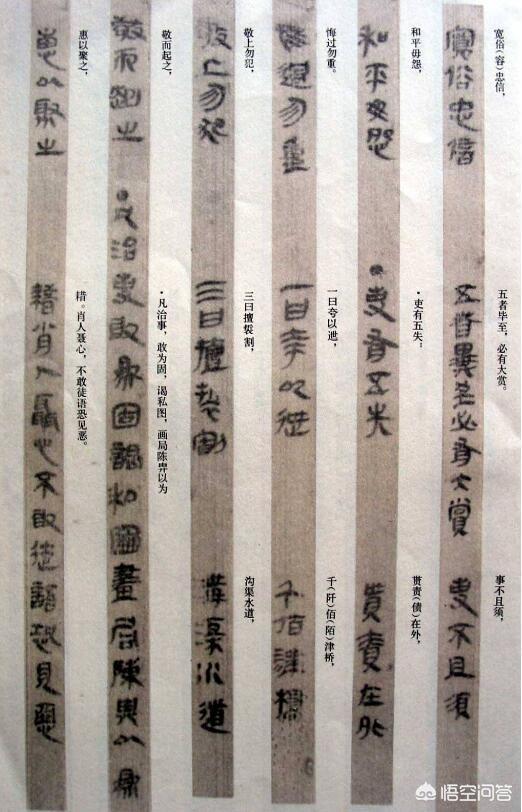 宽俗(容)忠信,
五者毕至,必有大赏。
事不且须,
寬俗忠信
五者畢至必有大賞
吏不且須
和平毋怨,
·吏有五失:
贳责(债)在外,
和平毋怨
·吏有五失
貰責在外
悔过勿重。
一曰夸以迣,
千(阡)佰(陌)津桥,
悔過勿重
一曰夸以迣
千佰津橋
敬上勿犯,
三曰擅裚割,
沟渠水道,
敬上勿犯
三曰擅裚割
溝渠水道
敬而起之,
·凡治事,敢为固,谒私图,画局陈畀以为
敬而起之
·凡治事敢為固謁私圖畫局陳畀以為
惠以聚之,
耤。肖人聂心,不敢徒语恐见恶。
惠以聚之
耤肖人聶心不敢徒語恐見惡
悟空问答